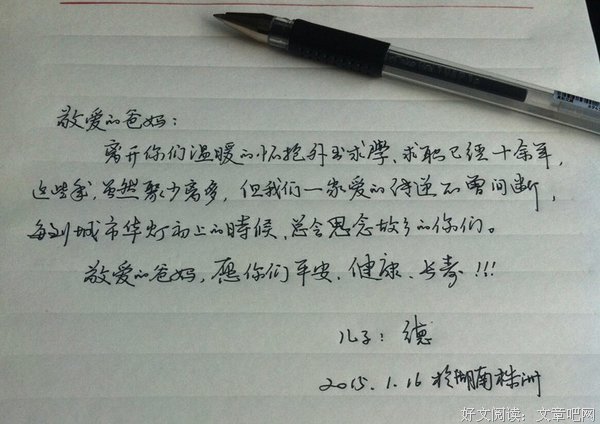 敬爱的爸妈：
离开你们温暖的怀抱外出求学、求职已经十余年，
这些年，虽然聚少离多，但我们一家爱的传递不曾间断，
每到城市华灯初上的时候，总会思念故乡的你们。
敬爱的爸妈，愿你们平安、健康、长寿!!!
儿子：德
2015.1.16 於湖南株洲
好文阅读：文章吧网